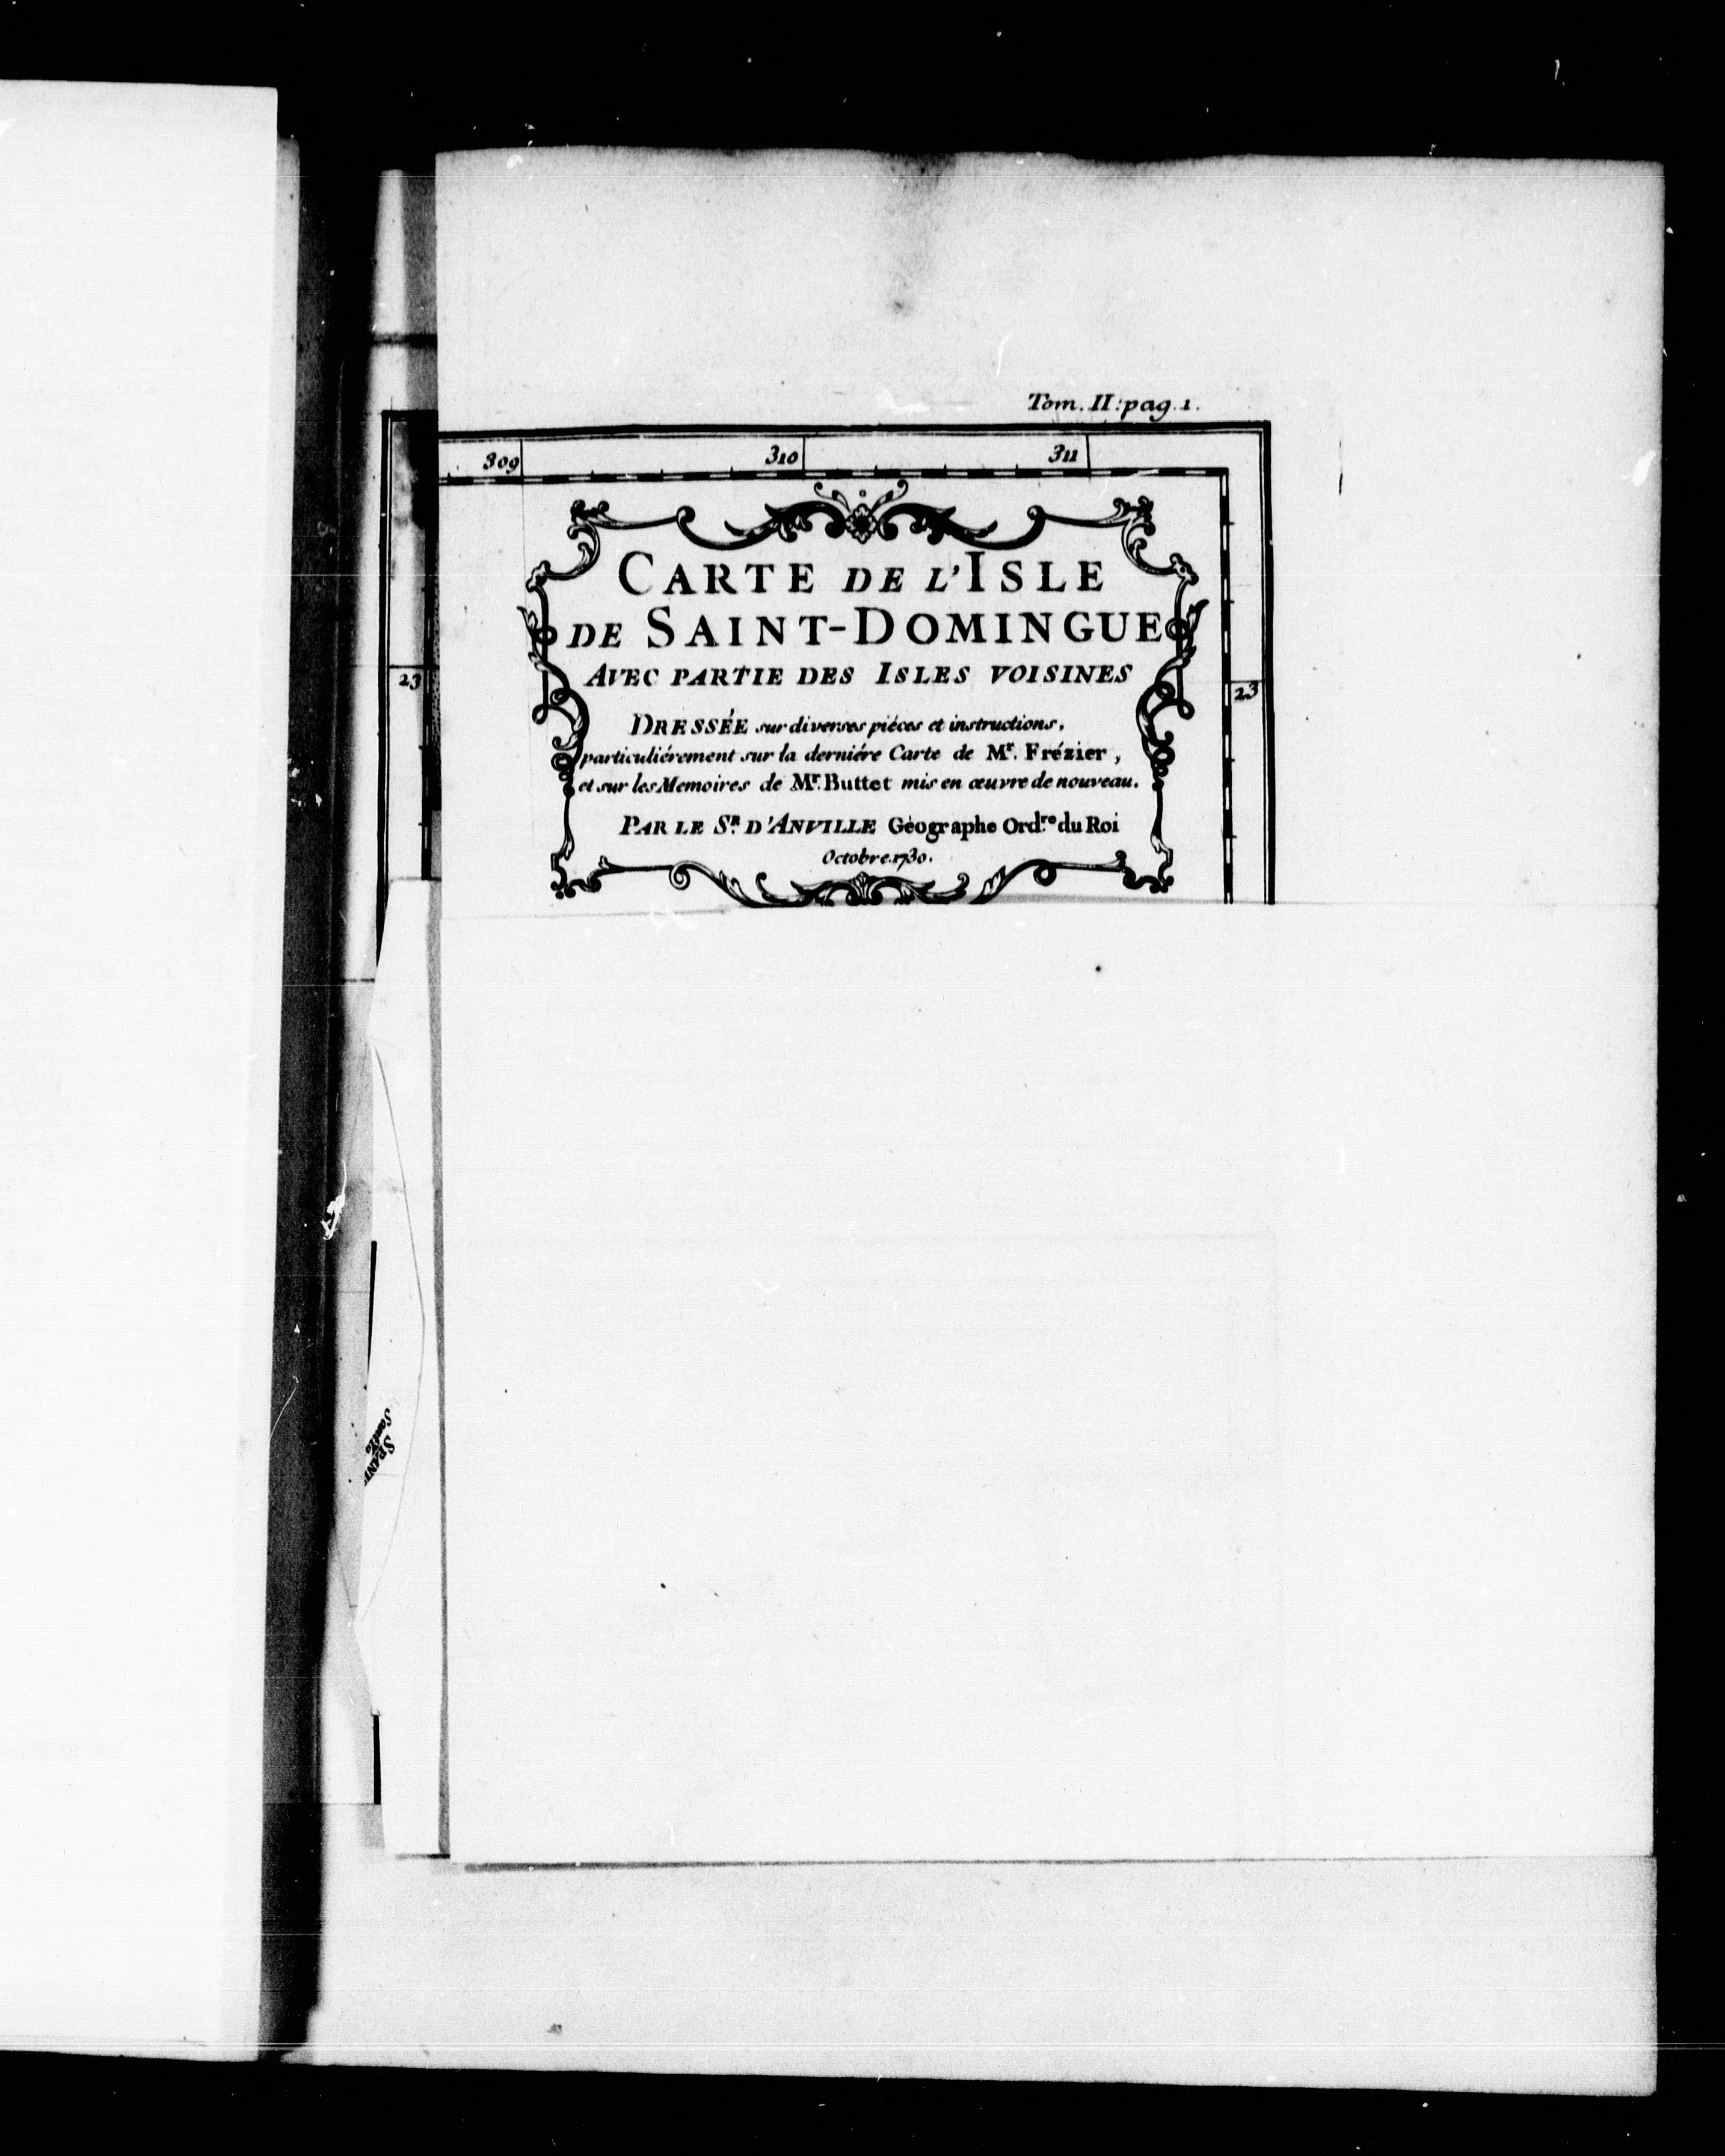 Tom. II: pag. 1.
309 310 311
CARTE DE L'ISLE
DE SAINT-DOMINGUE
AVEC PARTIE DES ISLES VOISINES
DRESSÉE sur diverses piéces et instructions,
particuliérement sur la derniére Carte de Mr. Frézier,
et sur les Memoires de Mr. Buttet mis en œuvre de nouveau.
PAR LE SR. D'ANVILLE Géographe Ord.re du Roi
Octobre 1730.
23 23